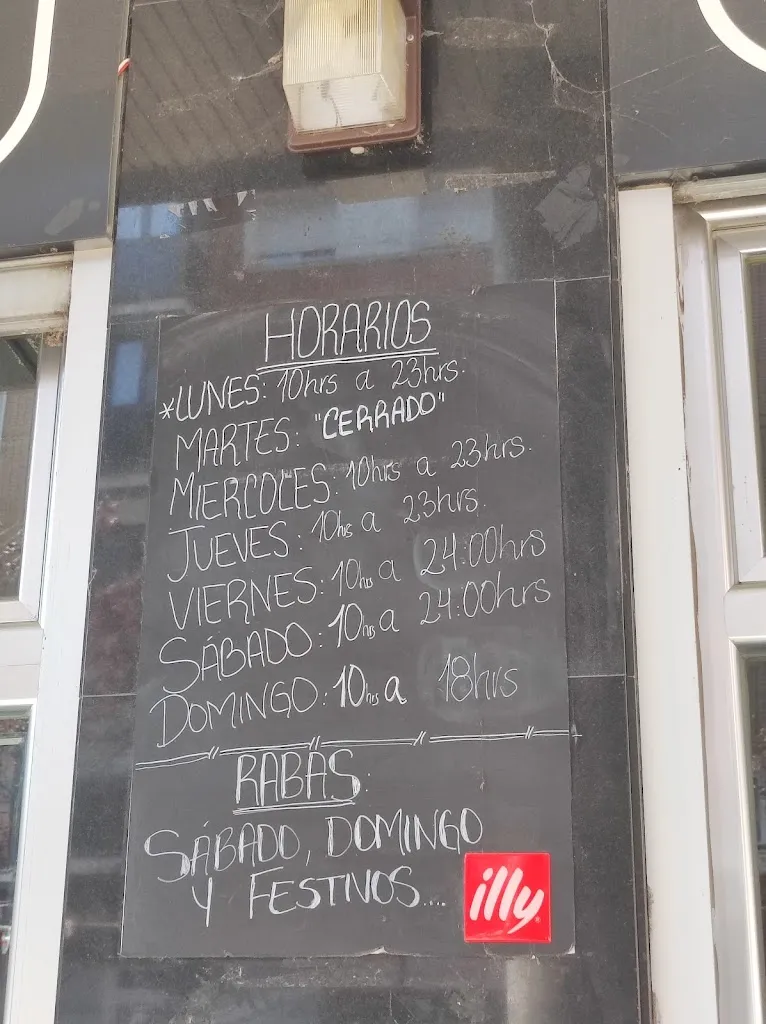 HORARIOS
*LUNES: 10hrs a 23hrs.
MARTES: "CERRADO"
MIERCOLES: 10hrs a 23hrs.
JUEVES: 10hrs a 23hrs.
VIERNES: 10hrs a 24:00hrs
SÁBADO: 10hrs a 24:00hrs
DOMINGO: 10hrs a 18hrs
RABAS:
SÁBADO, DOMINGO
Y FESTIVOS....
illy